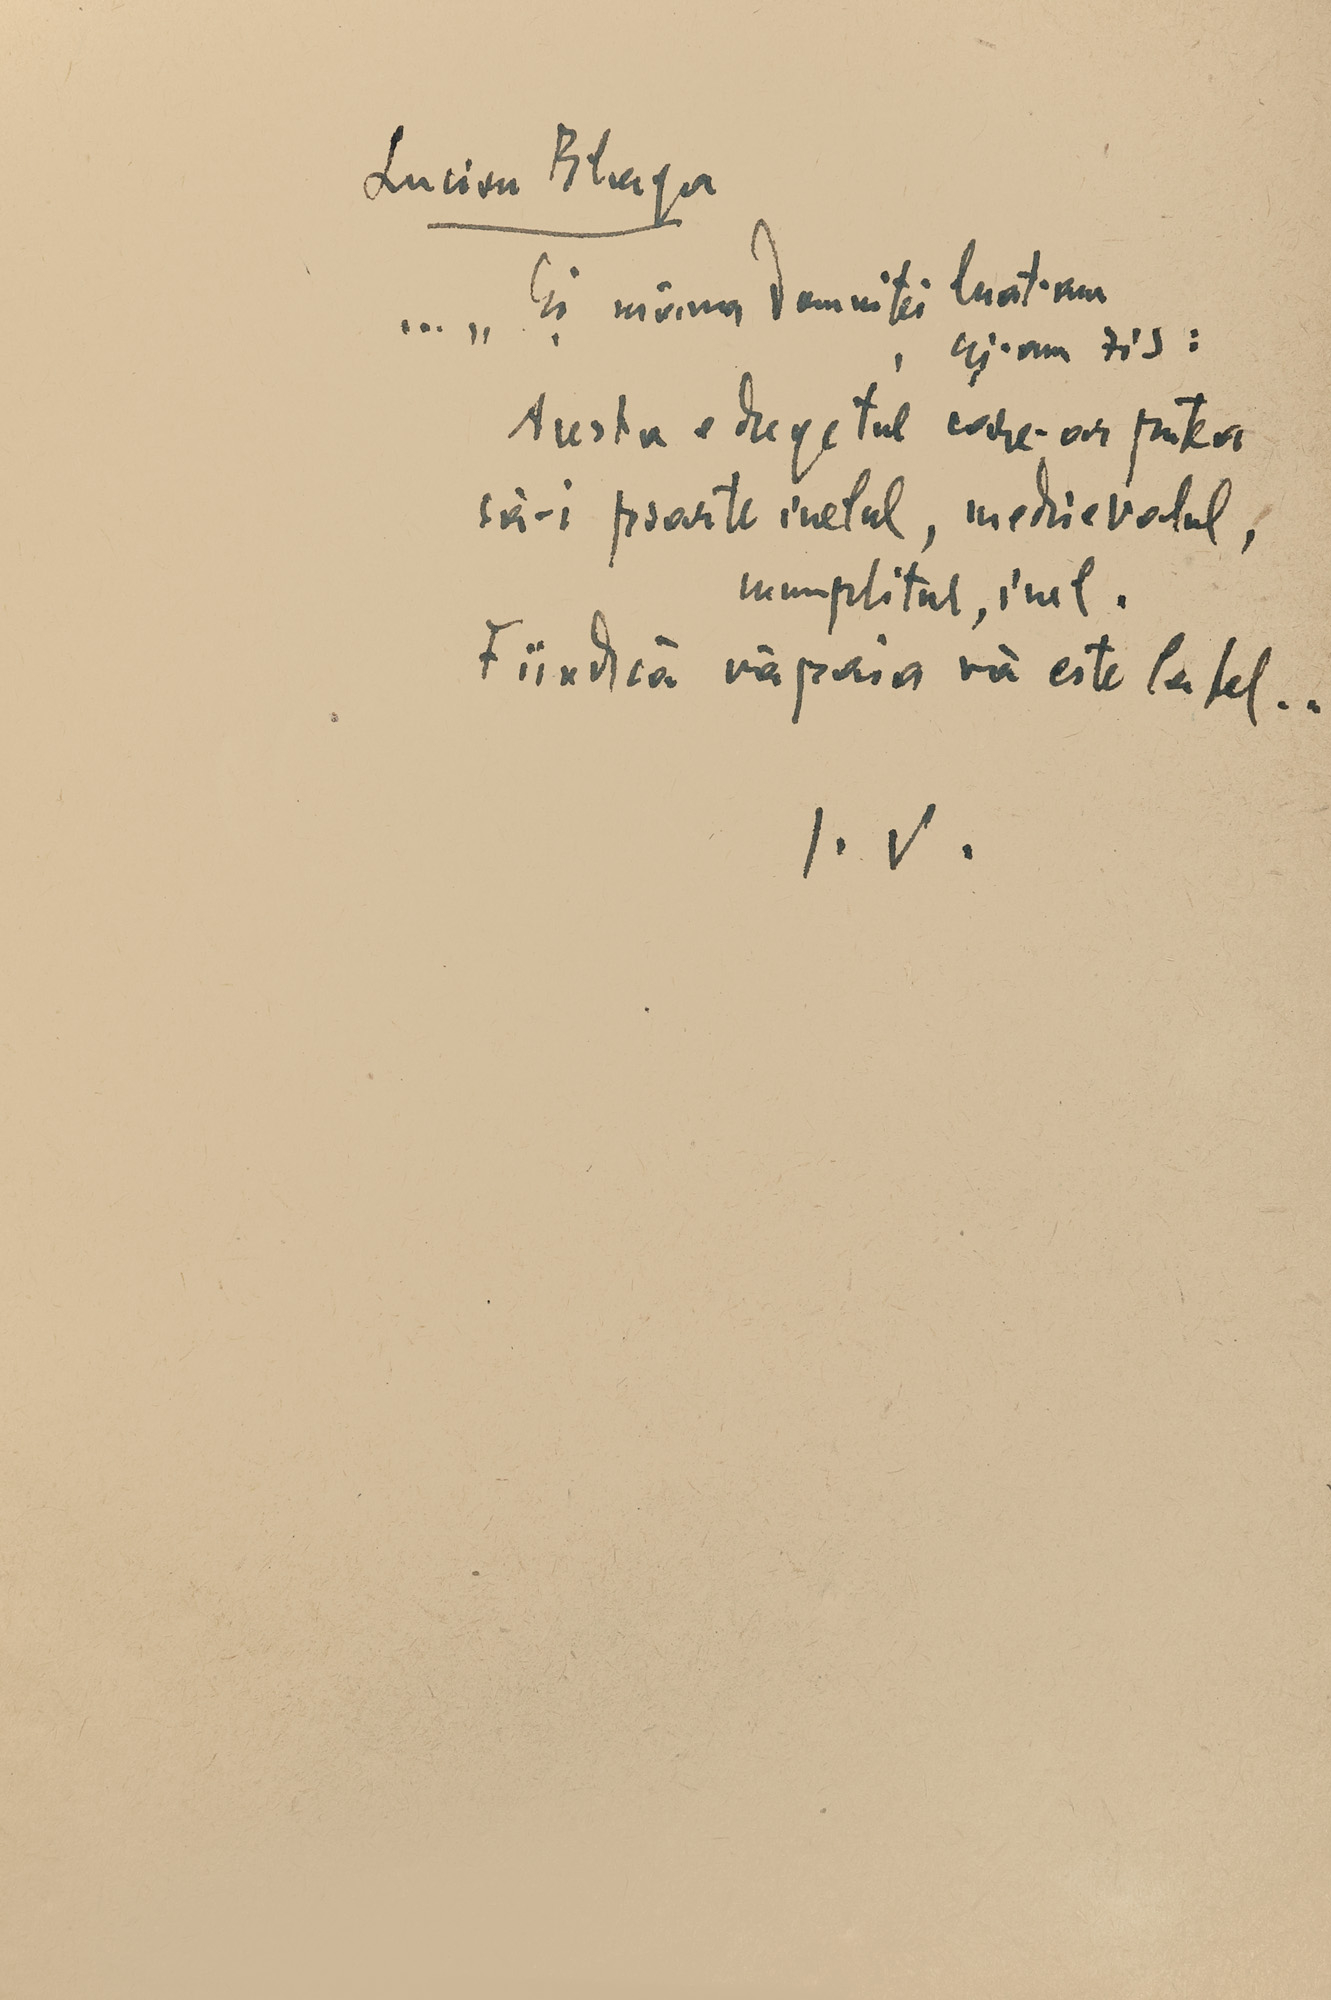 Lucian Blaga
... „ Și mâna Domniței luat-am
și-am zis :
Acesta e degetul care-ar putea
să-i poarte inelul, medievalul,
cumplitul, inel .
Fiindcă văpaia vă este la fel ..
I. V .